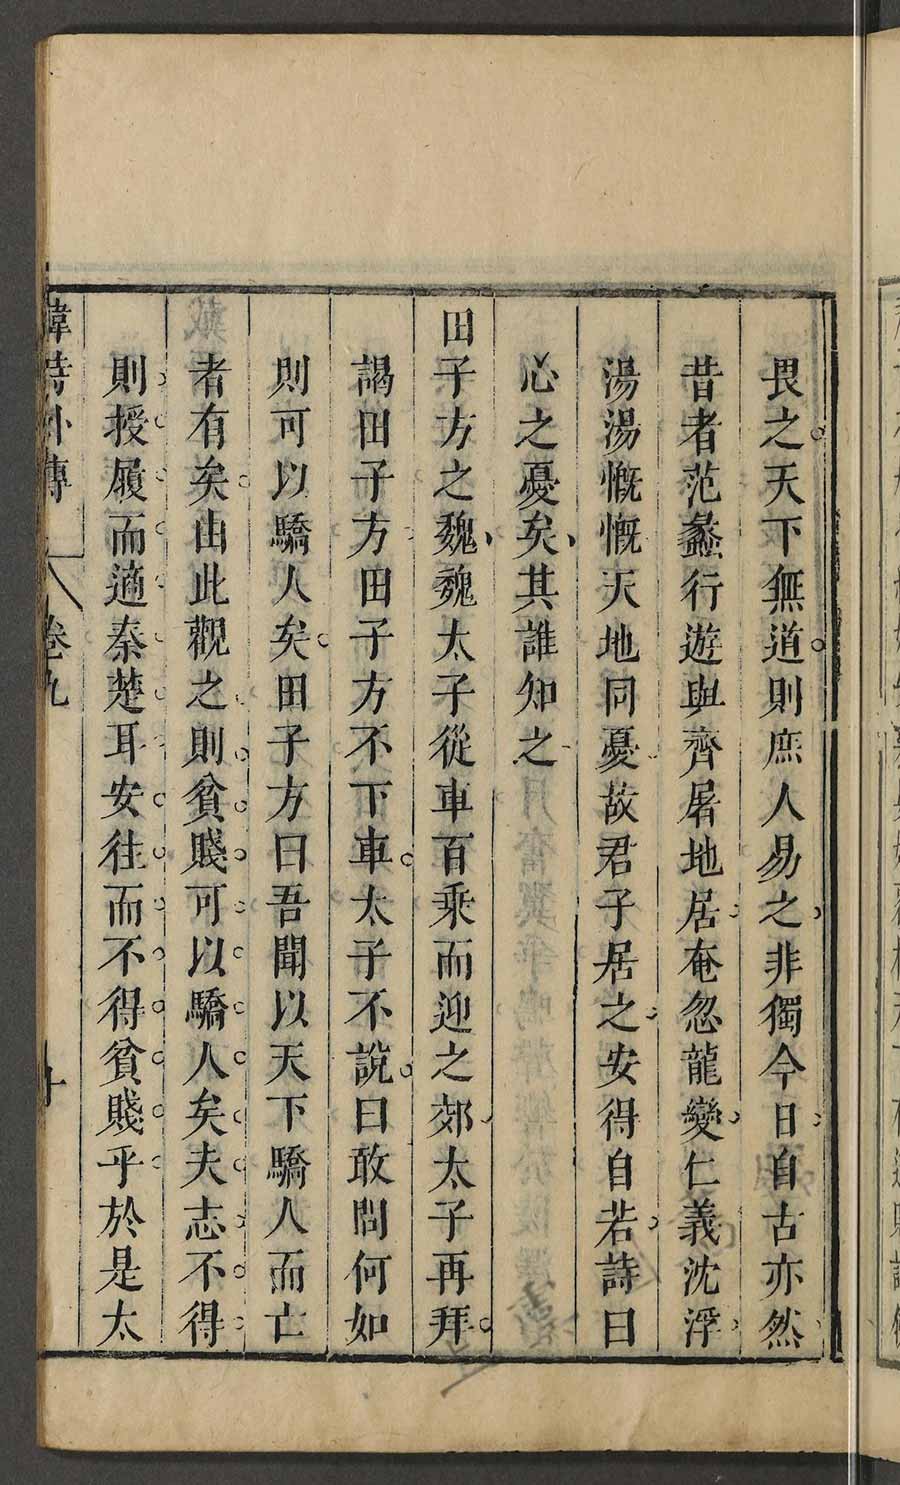 畏之天下無道則庶人易之非獨今日自古亦然
昔者范蠡行遊與齊屠地居奄忽龍變仁義沈浮
湯湯慨慨天地同憂故君子居之安得自若詩曰
心之憂矣其誰知之
田子方之魏魏太子從車百乘而迎之郊太子再拜
謁田子方田子方不下車太子不說曰敢問何如
則可以驕人矣田子方曰吾聞以天下驕人而亡
者有矣由此觀之則貧賤可以驕人矣夫志不得
則授履而適秦楚耳安往而不得貧賤乎於是太
韓詩外傳 卷九 十